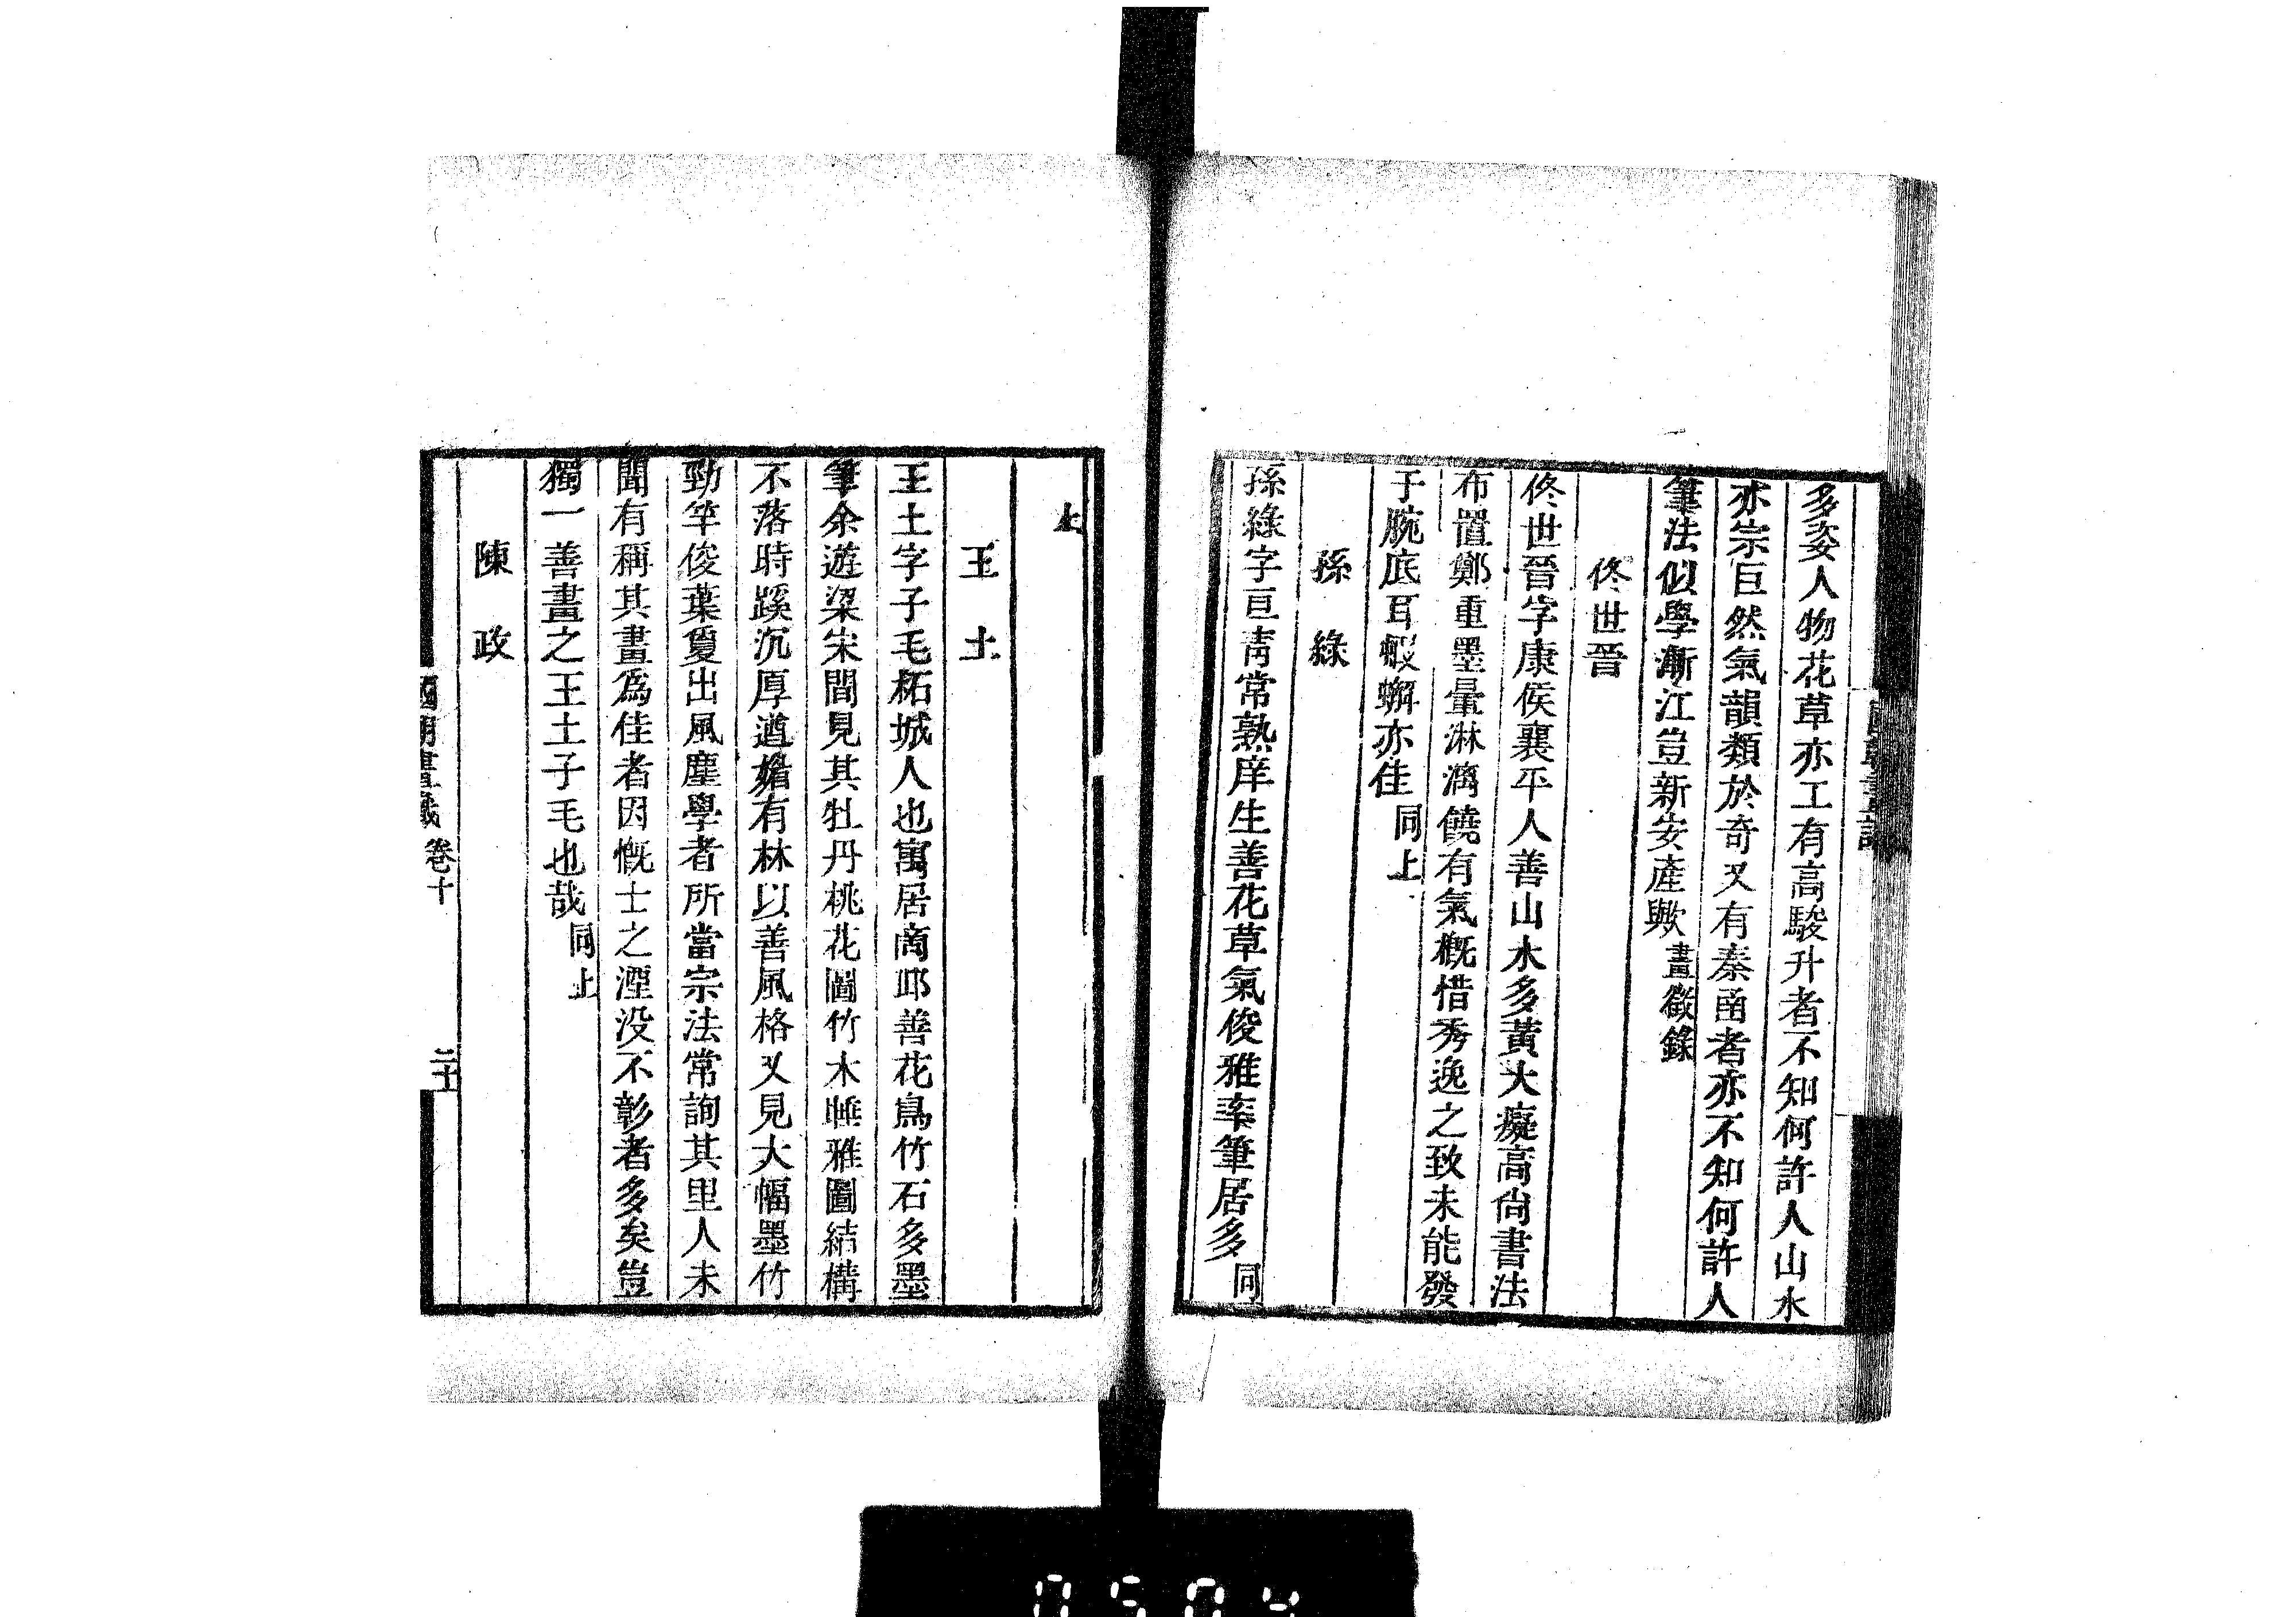 多姿人物花草亦工有高駿升者不知何許人山水
亦宗巨然氣韻類於奇又有秦凾者亦不知何許人
筆法似學漸江豈新安產歟畫徵錄
佟世晉
佟世晉字康侯襄平人善山水多黃大癡高尚書法
布置鄭重墨暈淋漓饒有氣概惜秀逸之致未能發
于腕底耳蝦蠏亦佳同上
孫綠
孫綠字亘靑常熟庠生善花草氣俊雅率筆居多同
上
王土
王土字子毛柘城人也寓居商邱善花鳥竹石多墨
筆余遊梁宋間見其牡丹桃花圖竹木睡雅圖結構
不落時蹊沉厚遒媚有林以善風格又見大幅墨竹
勁竿俊葉夐出風塵學者所當宗法常詢其里人未
聞有稱其畫爲佳者因慨士之湮没不彰者多矣豈
獨一善畫之王土子毛也哉同上
陳政
國朝畫識 卷十 二十